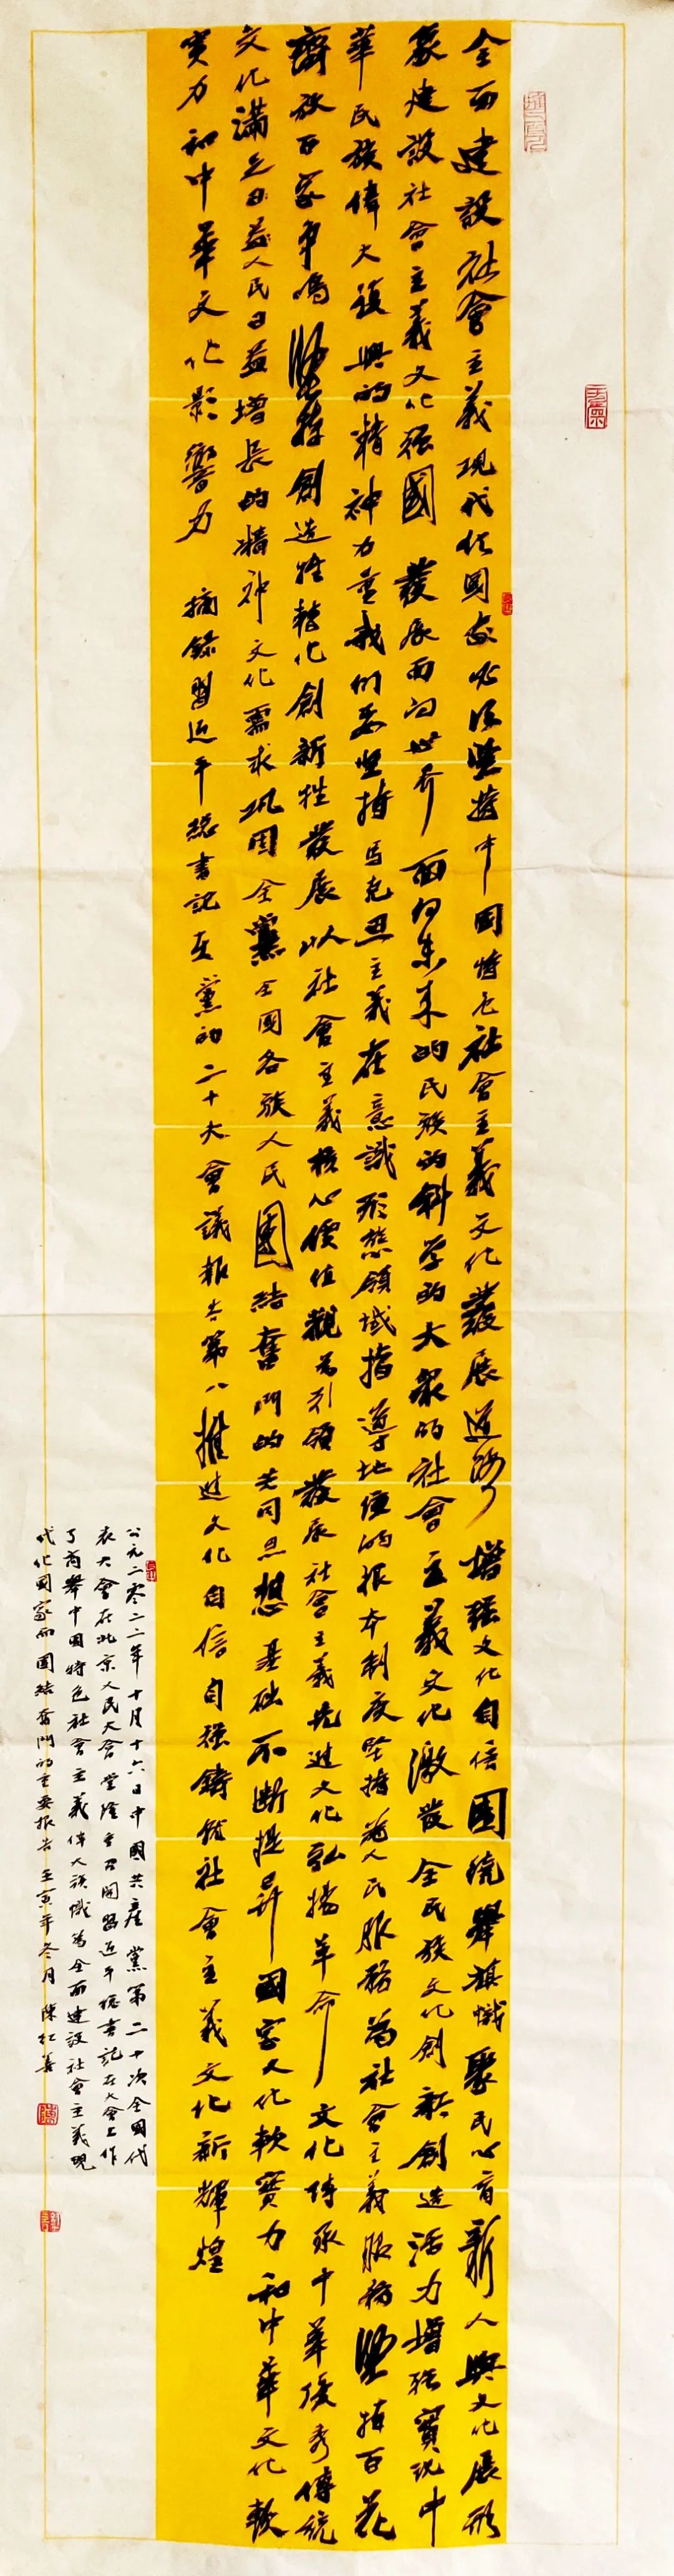 全面建設社會主義現代化國家必須堅持中國特色社會主義文化發展道路增强文化自信圍繞舉旗幟聚民心育新人興文化展形
象建設社會主義文化强國發展面向世界面向未来的民族的科学的大衆的社會主義文化激發全民族文化創新創造活力增强實現中
華民族偉大復興的精神力量我們要坚持马克思主義在意識形態領域指導地位的根本制度坚持為人民服務為社會主義服務堅持百花
齊放百家争鳴堅持創造性轉化創新性發展以社會主義核心價值觀為引領發展社會主義先進文化弘揚革命文化傳承中華優秀傳統
文化满足日益人民日益增長的精神文化需求巩固全黨全國各族人民團結奮鬥的共同思想基础不断提昇國家文化軟實力和中華文化軟
實力和中華文化影響力 摘錄習近平總書記在黨的二十大會議報告第八推進文化自信自强鑄就社會主義文化新輝煌
公元二零二二年十月十六日中國共産黨第二十次全國代
表大會在北京人民大會堂隆重召開習近平總書記在大會上作
了高舉中國特色社會主義偉大旗幟為全面建設社會主義現
代化國家而團結奮鬥的重要报告壬寅年冬月陳红善